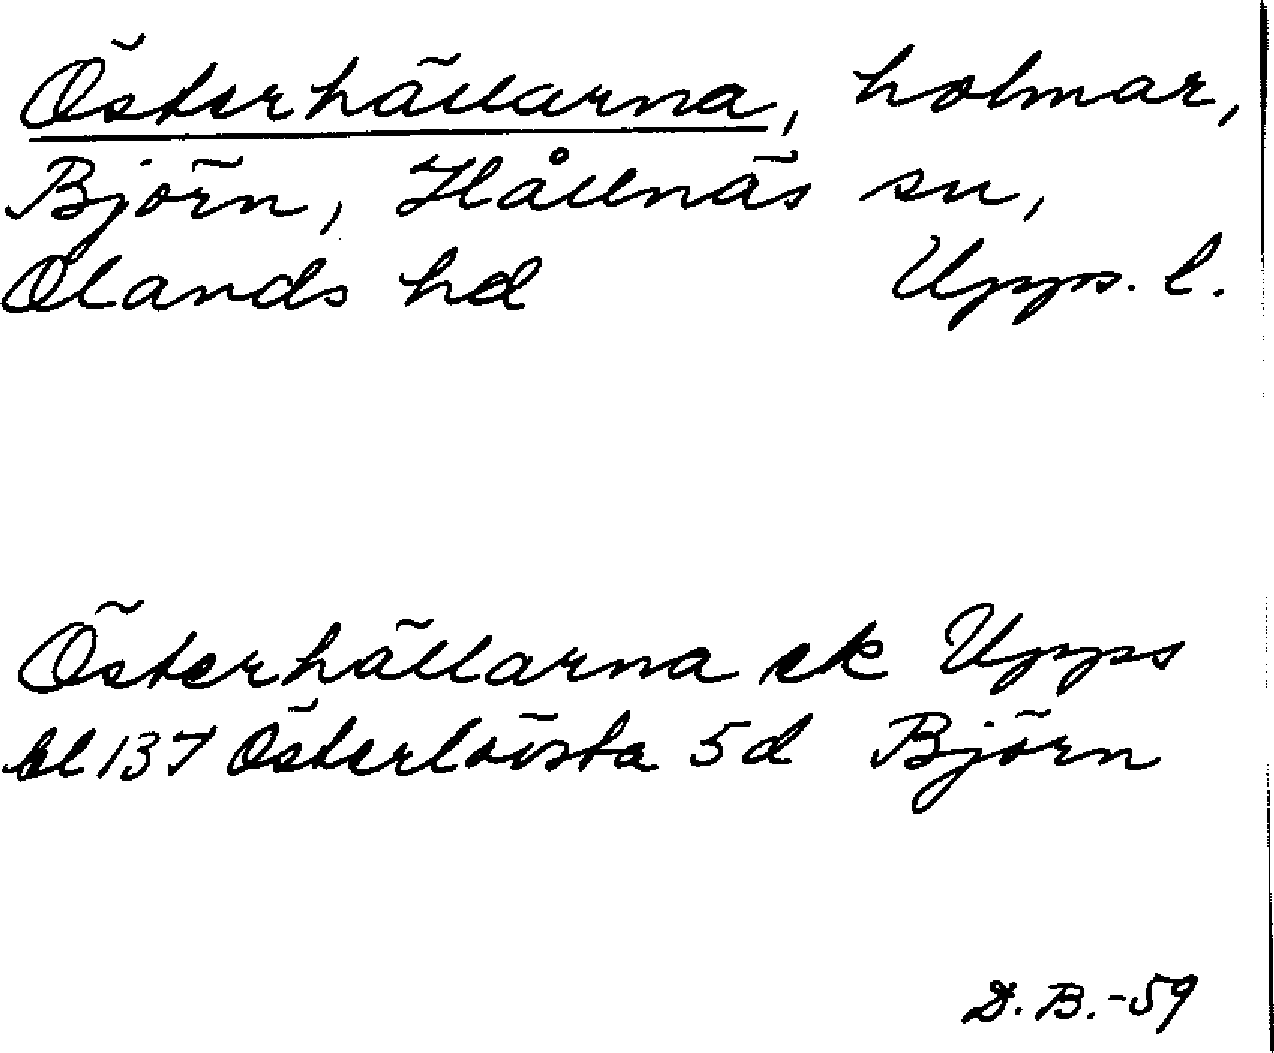 Österhällarna, holmar,
Björn, Hållnäs sn,
Olands hd Upps. l.
Österhällarna ek Upps
bl 137 Österlövsta 5d Björn
D.B.-59